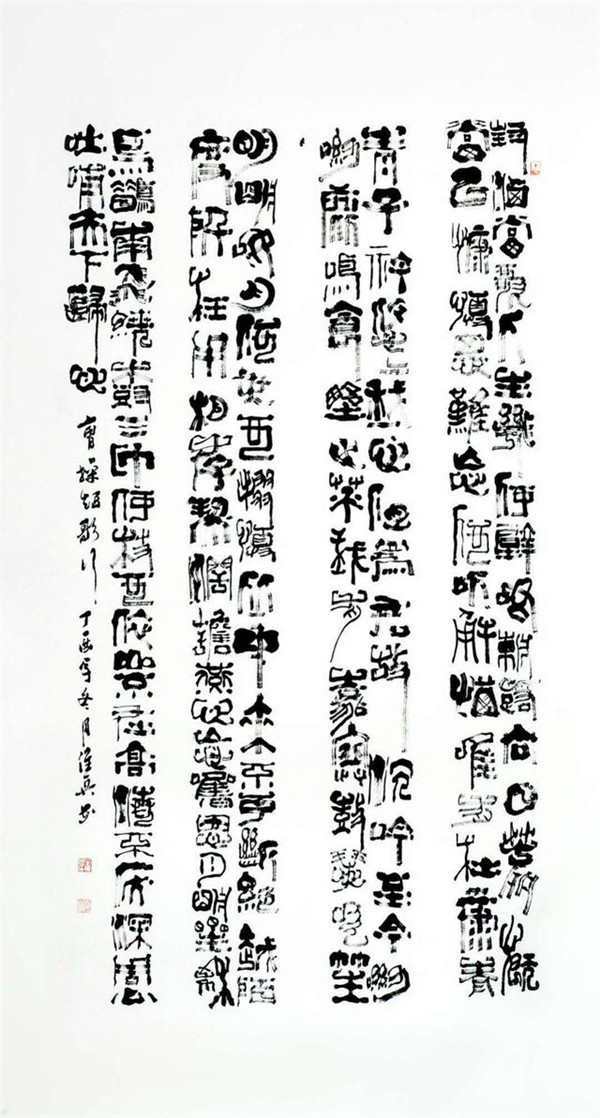 對酒當歌人生幾何譬如朝露去日苦多慨
當以慷憂思難忘何以解憂唯有杜康青
青子衿悠悠我心但為君故沉吟至今呦
呦鹿鳴食野之苹我有嘉賓鼓瑟吹笙
明明如月何時可掇憂從中來不可斷絕越陌
度阡枉用相存契闊談讌心念舊恩月明星稀
烏鵲南飛繞樹三匝何枝可依山不厭高海不厭深周公
吐哺天下歸心 曹操短歌行 丁酉年冬月